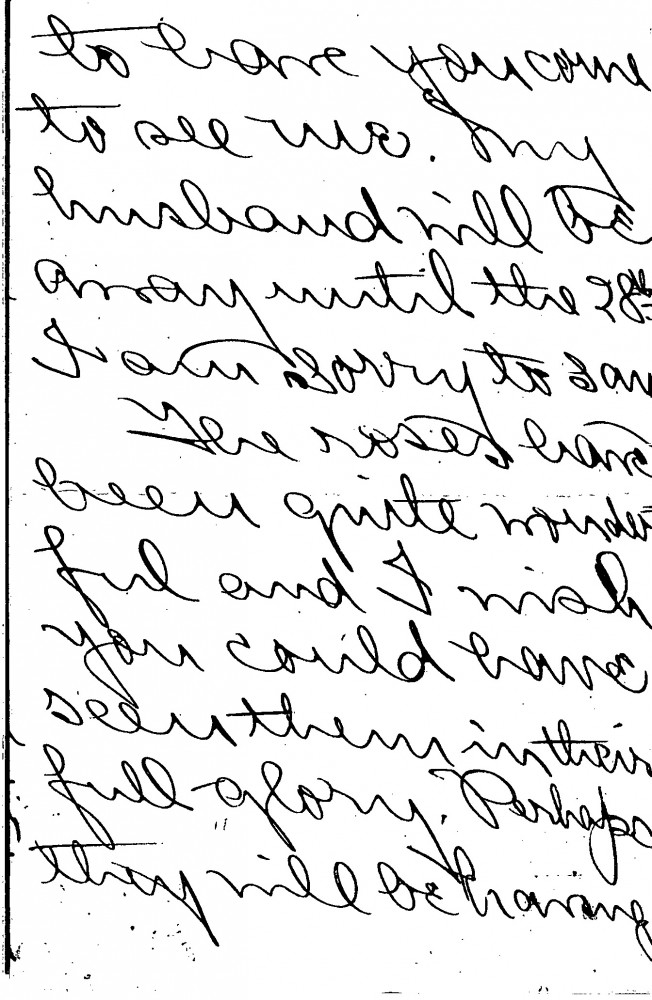 to have you come
to see me. My
husband will be
away until the 28th
I am sorry to say
The roses have
been quite wonder
ful and I wish
you could have
seen them in their
full glory. Perhaps
they will be having